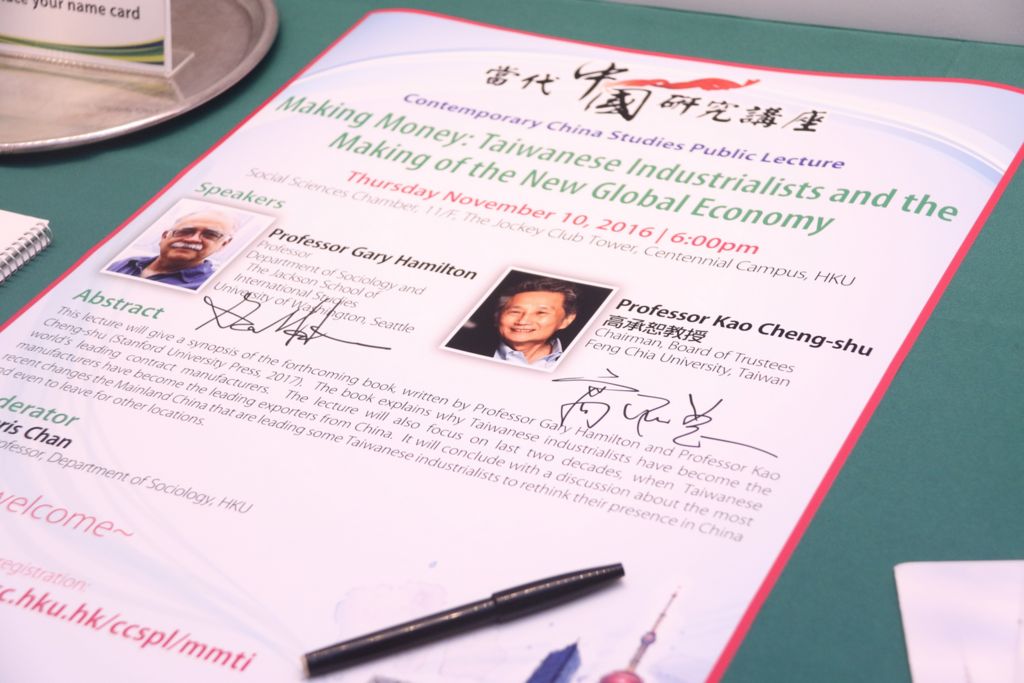 your name card
當代中國研究講座
Contemporary China Studies Public Lecture
Making Money: Taiwanese Industrialists and the
Making of the New Global Economy
Thursday November 10, 2016 | 6:00pm
Social Sciences Chamber, 11/F, The Jockey Club Tower, Centennial Campus, HKU
Speakers
Professor Gary Hamilton
Professor
Department of Sociology and
The Jackson School of
International Studies
University of Washington, Seattle
Professor Kao Cheng-shu
高承恕教授
Chairman, Board of Trustees
Feng Chia University, Taiwan
Abstract
This lecture will give a synopsis of the forthcoming book written by Professor Gary Hamilton and Professor Kao
Cheng-shu (Stanford University Press, 2017). The book explains why Taiwanese industrialists have become the
world's leading contract manufacturers. The lecture will also focus on last two decades, when Taiwanese
manufacturers have become the leading exporters from China. It will conclude with a discussion about the most
recent changes the Mainland China that are leading some Taiwanese industrialists to rethink their presence in China
even to leave for other locations.
Chan
Department of Sociology, HKU
welcome~
registration:
.hku.hk/ccspl/mmti